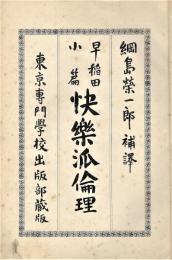 綱島榮一郎 補譯
早稲田
小篇
快樂派倫理
東京專門學校出版部藏版